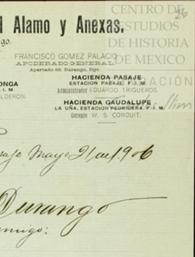 CENTRO DE
ESTUDIOS
DE HISTORIA
DE MEXICO.
Alamo y Anexas.
FRANCISCO GOMEZ PALACIO
APODERADO GENERAL.
Apartado 88. Durango, Dgo.
HACIENDA PASAJE
ESTACION PASAJE, F. I. M.
Administrador EDUARDO TRIGUEROS
HACIENDA GUADALUPE
LA UÑA, ESTACION PEDRICEÑA, F. I. M.
Gerente W. S. CONDUIT.
Mayo 21 de 1906
Durango